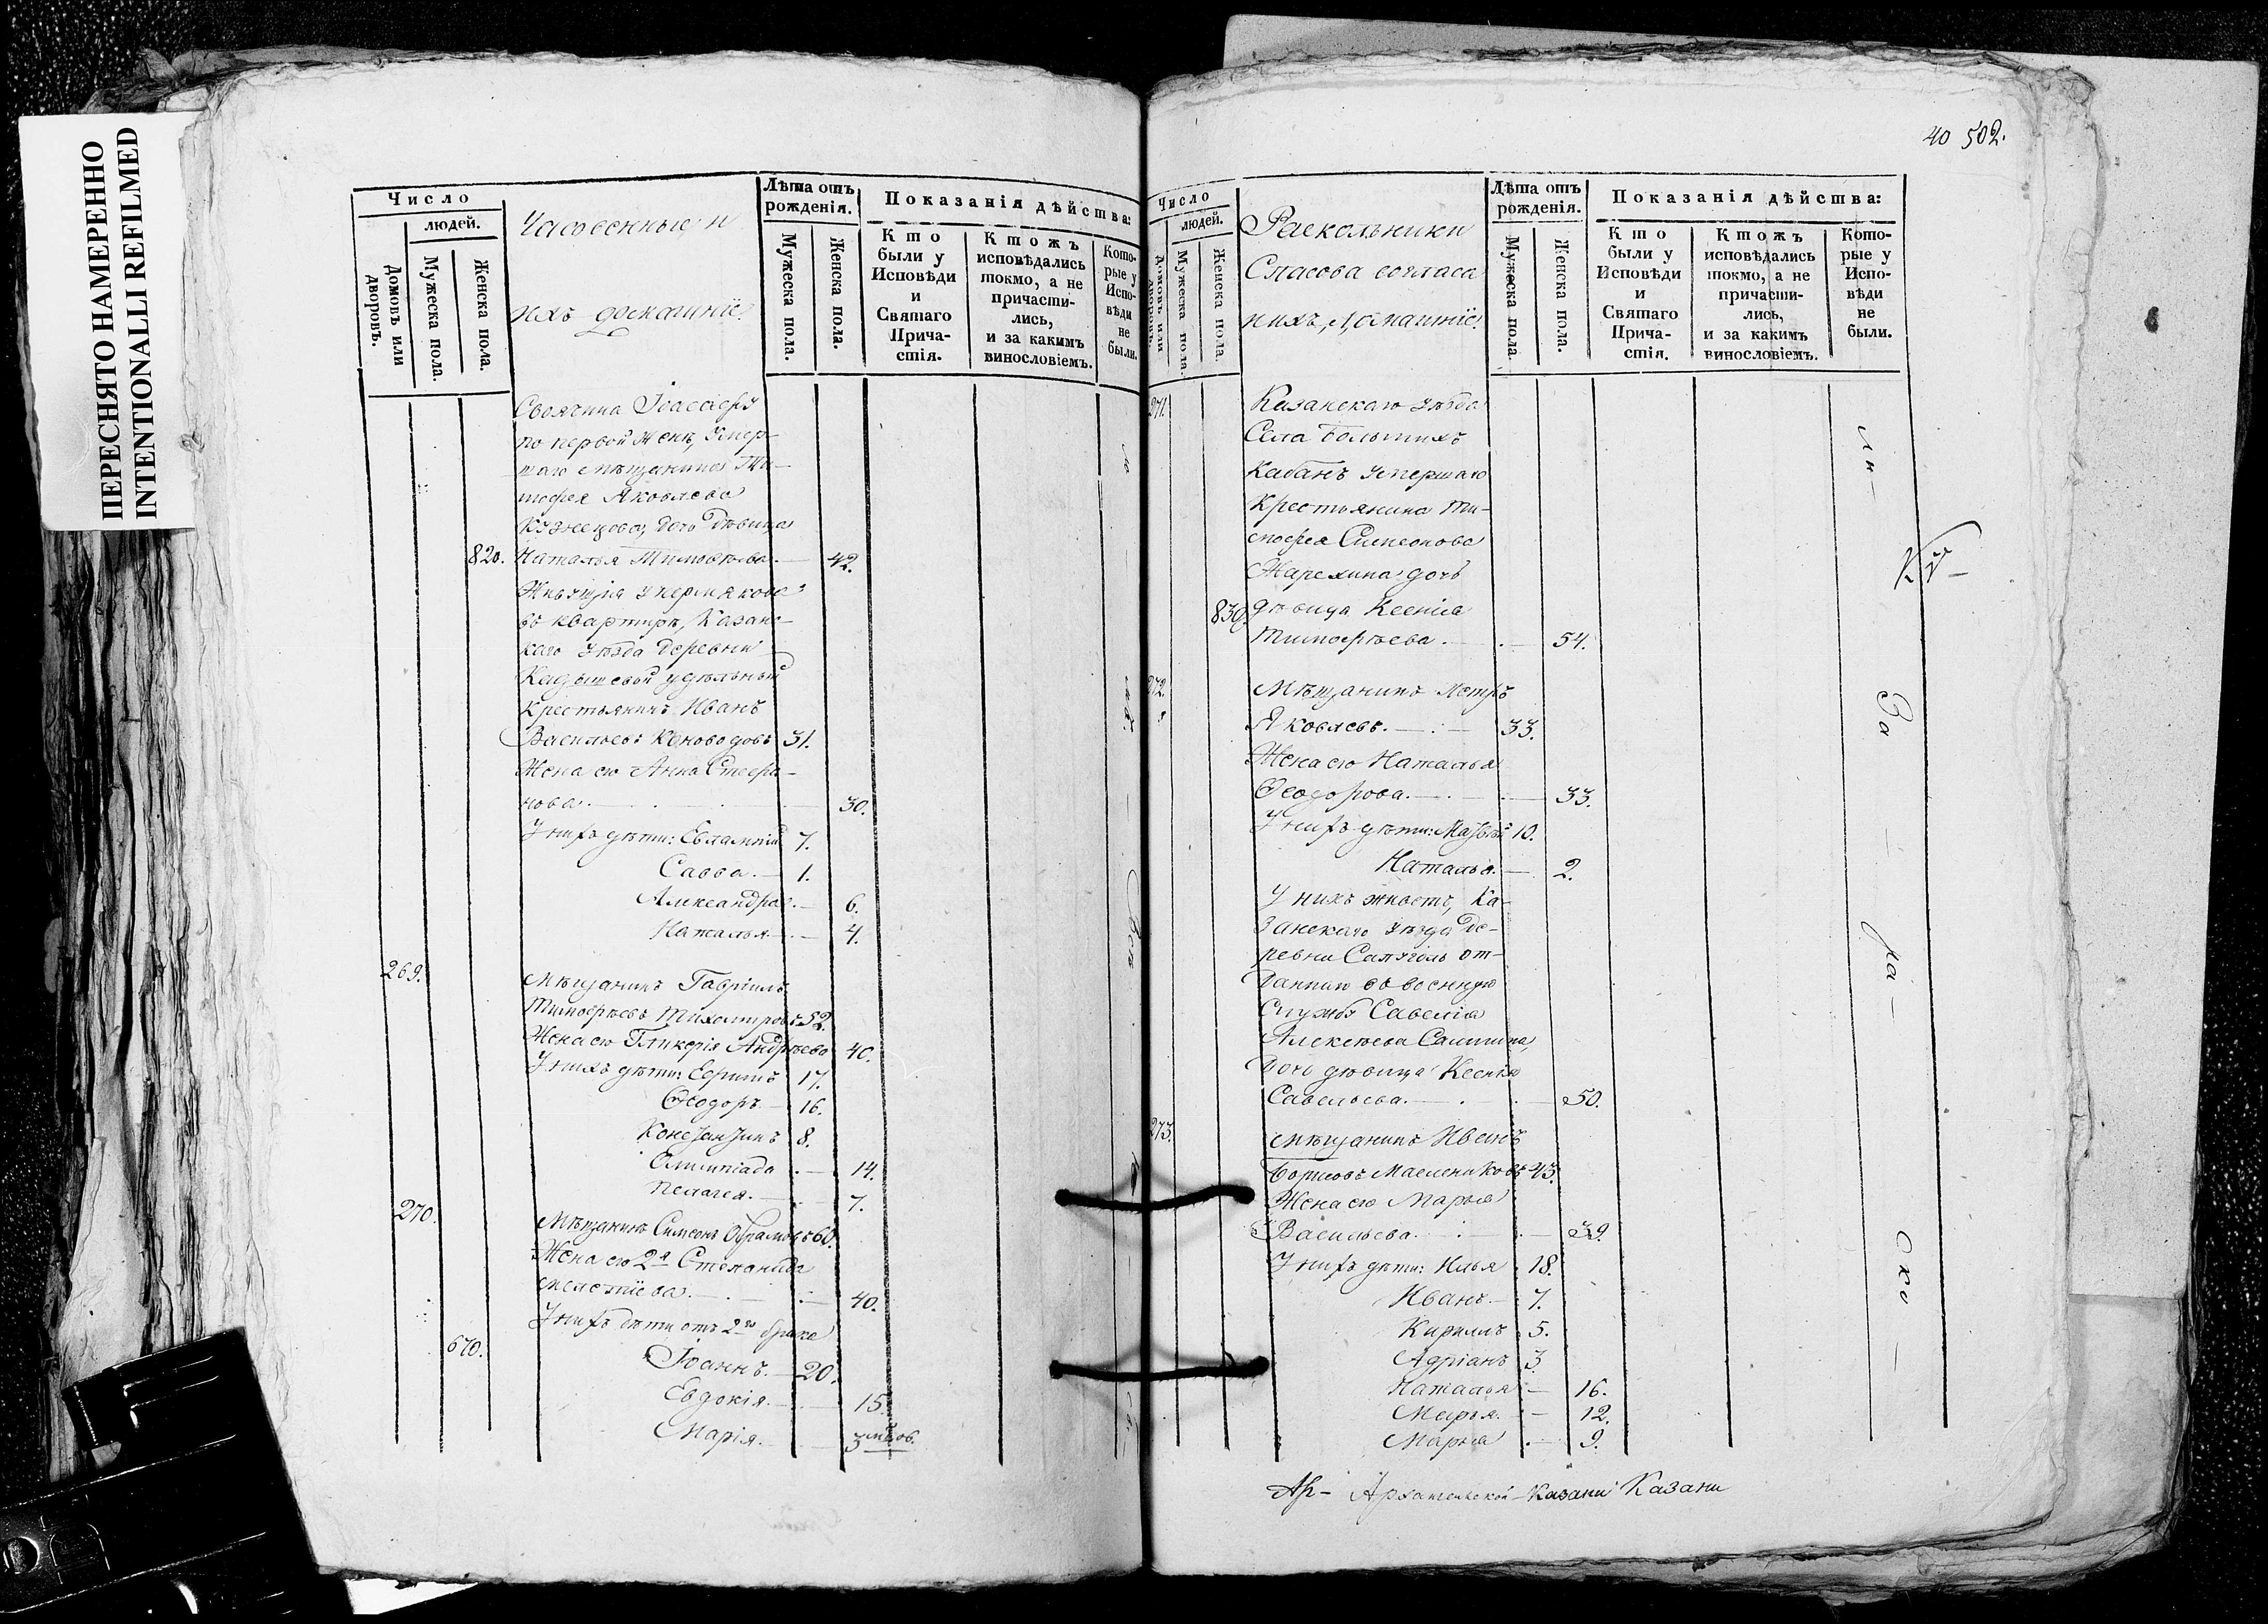 ПЕРЕСНЯТО НАМЕРЕННО
INTENTIONALLI REFILMED
Число
людей.
Домовъ или дворовъ.
Мужеска пола.
Женска пола.
Часовенные и
ихъ домашніе
Лѣта отъ рожденія.
Мужеска пола.
Женска пола.
Показанія дѣйства:
Кто были у Исповѣди и Святаго Причастія.
Ктожъ исповѣдались токмо, а не причастились, и за какимъ винословіемъ.
Которые у Исповѣди не были.
Своячина
по первой женѣ, умер-
шаго мѣщанина Ти-
мофея Яковлева
Кузнецова, дочь дѣвица
820. Наталья Тимофѣева. 42.
Живущіе у Пермякова
въ квартирѣ, Казанс-
каго уѣзда деревни
Кадышевой удѣльный
крестьянинъ Иванъ
Васильевъ Коноводовъ 31.
Жена его Анна Стефа-
нова. 30.
У нихъ дѣти: Евлампій 7.
Савва. 1.
Александра. 6.
Наталья. 4.
269. Мѣщанинъ Гавріилъ
Тимофѣевъ Тихомировъ 52.
Жена его Гликерія Андрѣева 40.
У нихъ дѣти: Ефимъ 17.
Ѳеодоръ. 16.
Константинъ 8.
Олимпіада 14.
Пелагея. 7.
270. Мѣщанинъ Симеонъ 60.
Жена его 2я Степанида
40.
У нихъ дѣти отъ 2го брака
670. Іоаннъ. 20.
Евдокія. 15.
Марія. 3
40 502.
Число
людей.
Домовъ или дворовъ.
Мужеска пола.
Женска пола.
Раскольники
Спасова согласа
и ихъ домашніе
Лѣта отъ рожденія.
Мужеска пола.
Женска пола.
Показанія дѣйства:
Кто были у Исповѣди и Святаго Причастія.
Ктожъ исповѣдались токмо, а не причастились, и за какимъ винословіемъ.
Которые у Исповѣди не были.
271. Казанскаго уѣзда
Села Большихъ
Кабанъ умершаго
Крестьянина Ти-
мофея Симеонова
дочь
830. дѣвица Ксенія
Тимофѣева. 54.
272. Мѣщанинъ Петръ
Яковлевъ. 33.
Жена его Наталья
Ѳеодорова. 33.
У нихъ дѣти: Матвѣй 10.
Наталья. 2.
У нихъ живетъ, Ка-
занскаго уѣзда де-
ревни от-
даннаго въ военную
службу Савелія
Алексѣева
дочь дѣвица Ксенія
Савельева. 50.
273. Мѣщанинъ Иванъ
Борисовъ Маслениковъ 43.
Жена его Марья
Васильева. 39.
У нихъ дѣти: Илья 18.
Иванъ. 7.
Кирилъ 5.
Адріанъ 3.
Наталья 16.
Марья. 12.
Марья 9.
Архангельской Казани Казани